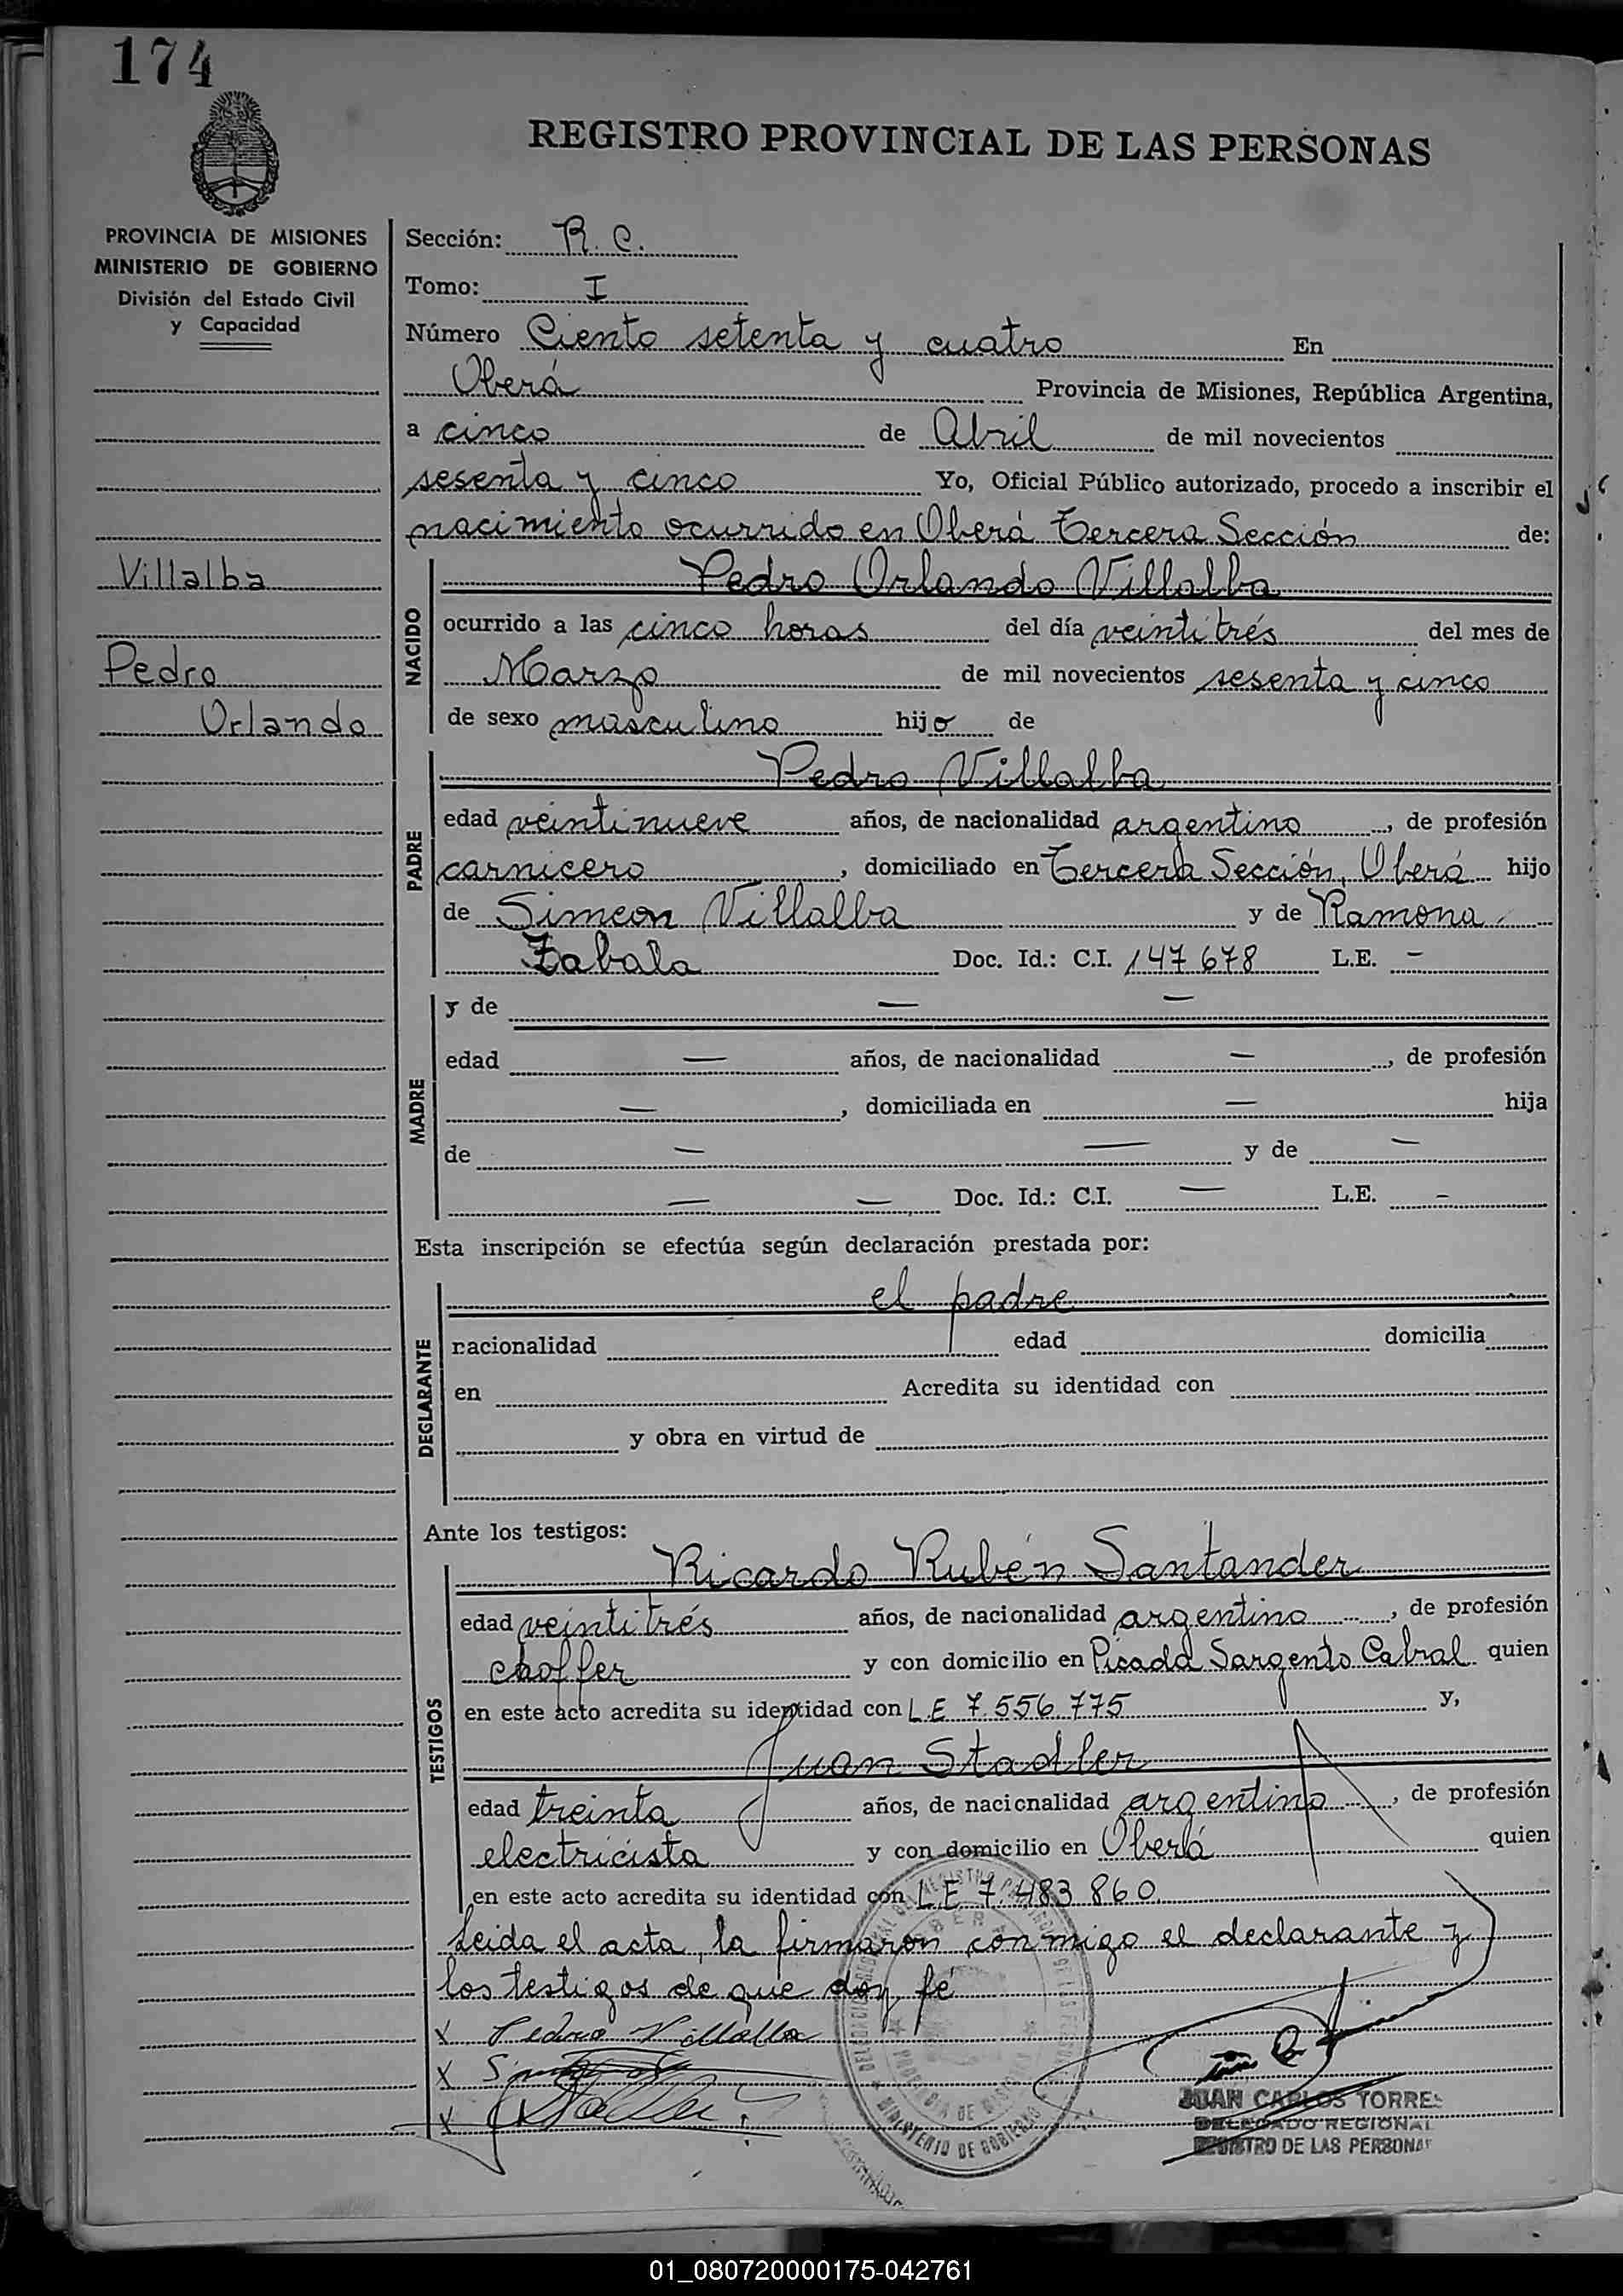 174
REGISTRO PROVINCIAL DE LAS PERSONAS
PROVINCIA DE MISIONES
MINISTERIO DE GOBIERNO
División del Estado Civil
y Capacidad
Sección: R. C.
Tomo: I
Número Ciento setenta y cuatro En
Oberá Provincia de Misiones, República Argentina,
a cinco de Abril de mil novecientos
sesenta y cinco Yo, Oficial Público autorizado, procedo a inscribir el
nacimiento ocurrido en Oberá Tercera Sección de:
Villalba
Pedro
Orlando
NACIDO
Pedro Orlando Villalba
ocurrido a las cinco horas del día veintitrés del mes de
Marzo de mil novecientos sesenta y cinco
de sexo masculino hijo de
PADRE
Pedro Villalba
edad veintinueve años, de nacionalidad argentino, de profesión
carnicero, domiciliado en Tercera Sección, Oberá hijo
de Simeon Villalba y de Ramona
Zabala Doc. Id.: C.I. 147678 L.E. —
MADRE
y de — —
edad — años, de nacionalidad —, de profesión
—, domiciliada en — hija
de — — y de —
— — Doc. Id.: C.I. — L.E. —
Esta inscripción se efectúa según declaración prestada por:
DECLARANTE
el padre
nacionalidad edad domicilia
en Acredita su identidad con
y obra en virtud de
Ante los testigos:
TESTIGOS
Ricardo Rubén Santander
edad veintitrés años, de nacionalidad argentino, de profesión
choffer y con domicilio en Picada Sargento Cabral quien
en este acto acredita su identidad con L.E 7.556.775 y,
Juan Stadler
edad treinta años, de nacionalidad argentino, de profesión
electricista y con domicilio en Oberá quien
en este acto acredita su identidad con L.E 7.483.860
Leida el acta, la firmaron conmigo el declarante y
los testigos de que doy fé
X Pedro Villalba
X
X
JUAN CARLOS TORRES
DELEGADO REGIONAL
REGISTRO DE LAS PERSONAS
MINISTERIO DE GOBIERNO
01_080720000175-042761